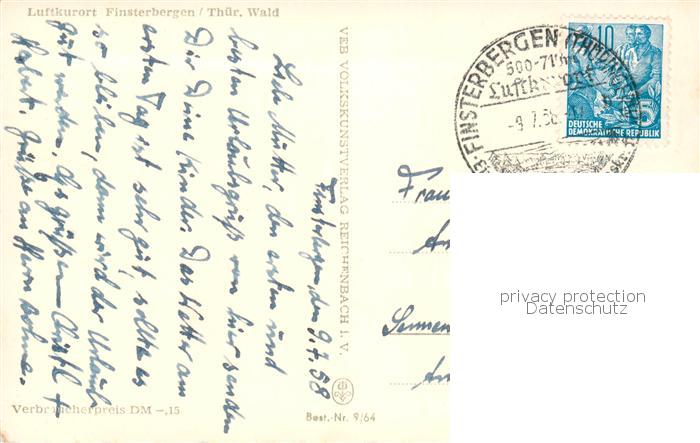 Luftkurort Finsterbergen / Thür. Wald
Finsterbergen, den 9.7.58
Liebe Mutter, den ersten und
besten Urlaubsgruß von hier senden
Dir Deine Kinder. Das Wetter am
ersten Tag ist sehr gut, sollte es
so bleiben, dann wird der Urlaub
gut werden. Es grüßen Christl +
Herbert. Grüße an Herrn
Verbraucherpreis DM -,15
VEB VOLKSKUNSTVERLAG REICHENBACH i. V.
Best.-Nr. 9/64
FINSTERBERGEN (THÜRINGEN)
500-71
Luftkurort
-9.7.58
10
5
DEUTSCHE
DEMOKRATISCHE REPUBLIK
Frau
An
privacy protection
Datenschutz